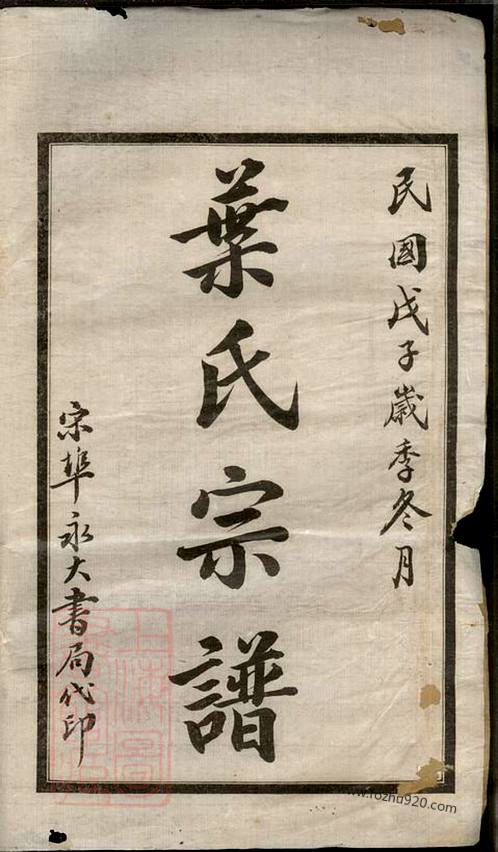 民國戊子歲季冬月
葉氏宗譜
宋埠永大書局代印
www.fozhu920.com